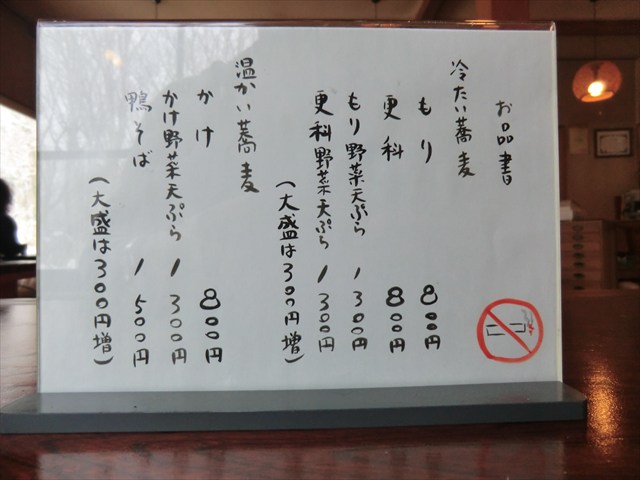 お品書
冷たい蕎麦
もり 800円
更科 800円
もり野菜天ぷら 1300円
更科野菜天ぷら 1300円
(大盛は300円増)
温かい蕎麦
かけ 800円
かけ野菜天ぷら 1300円
鴨そば 1500円
(大盛は300円増)